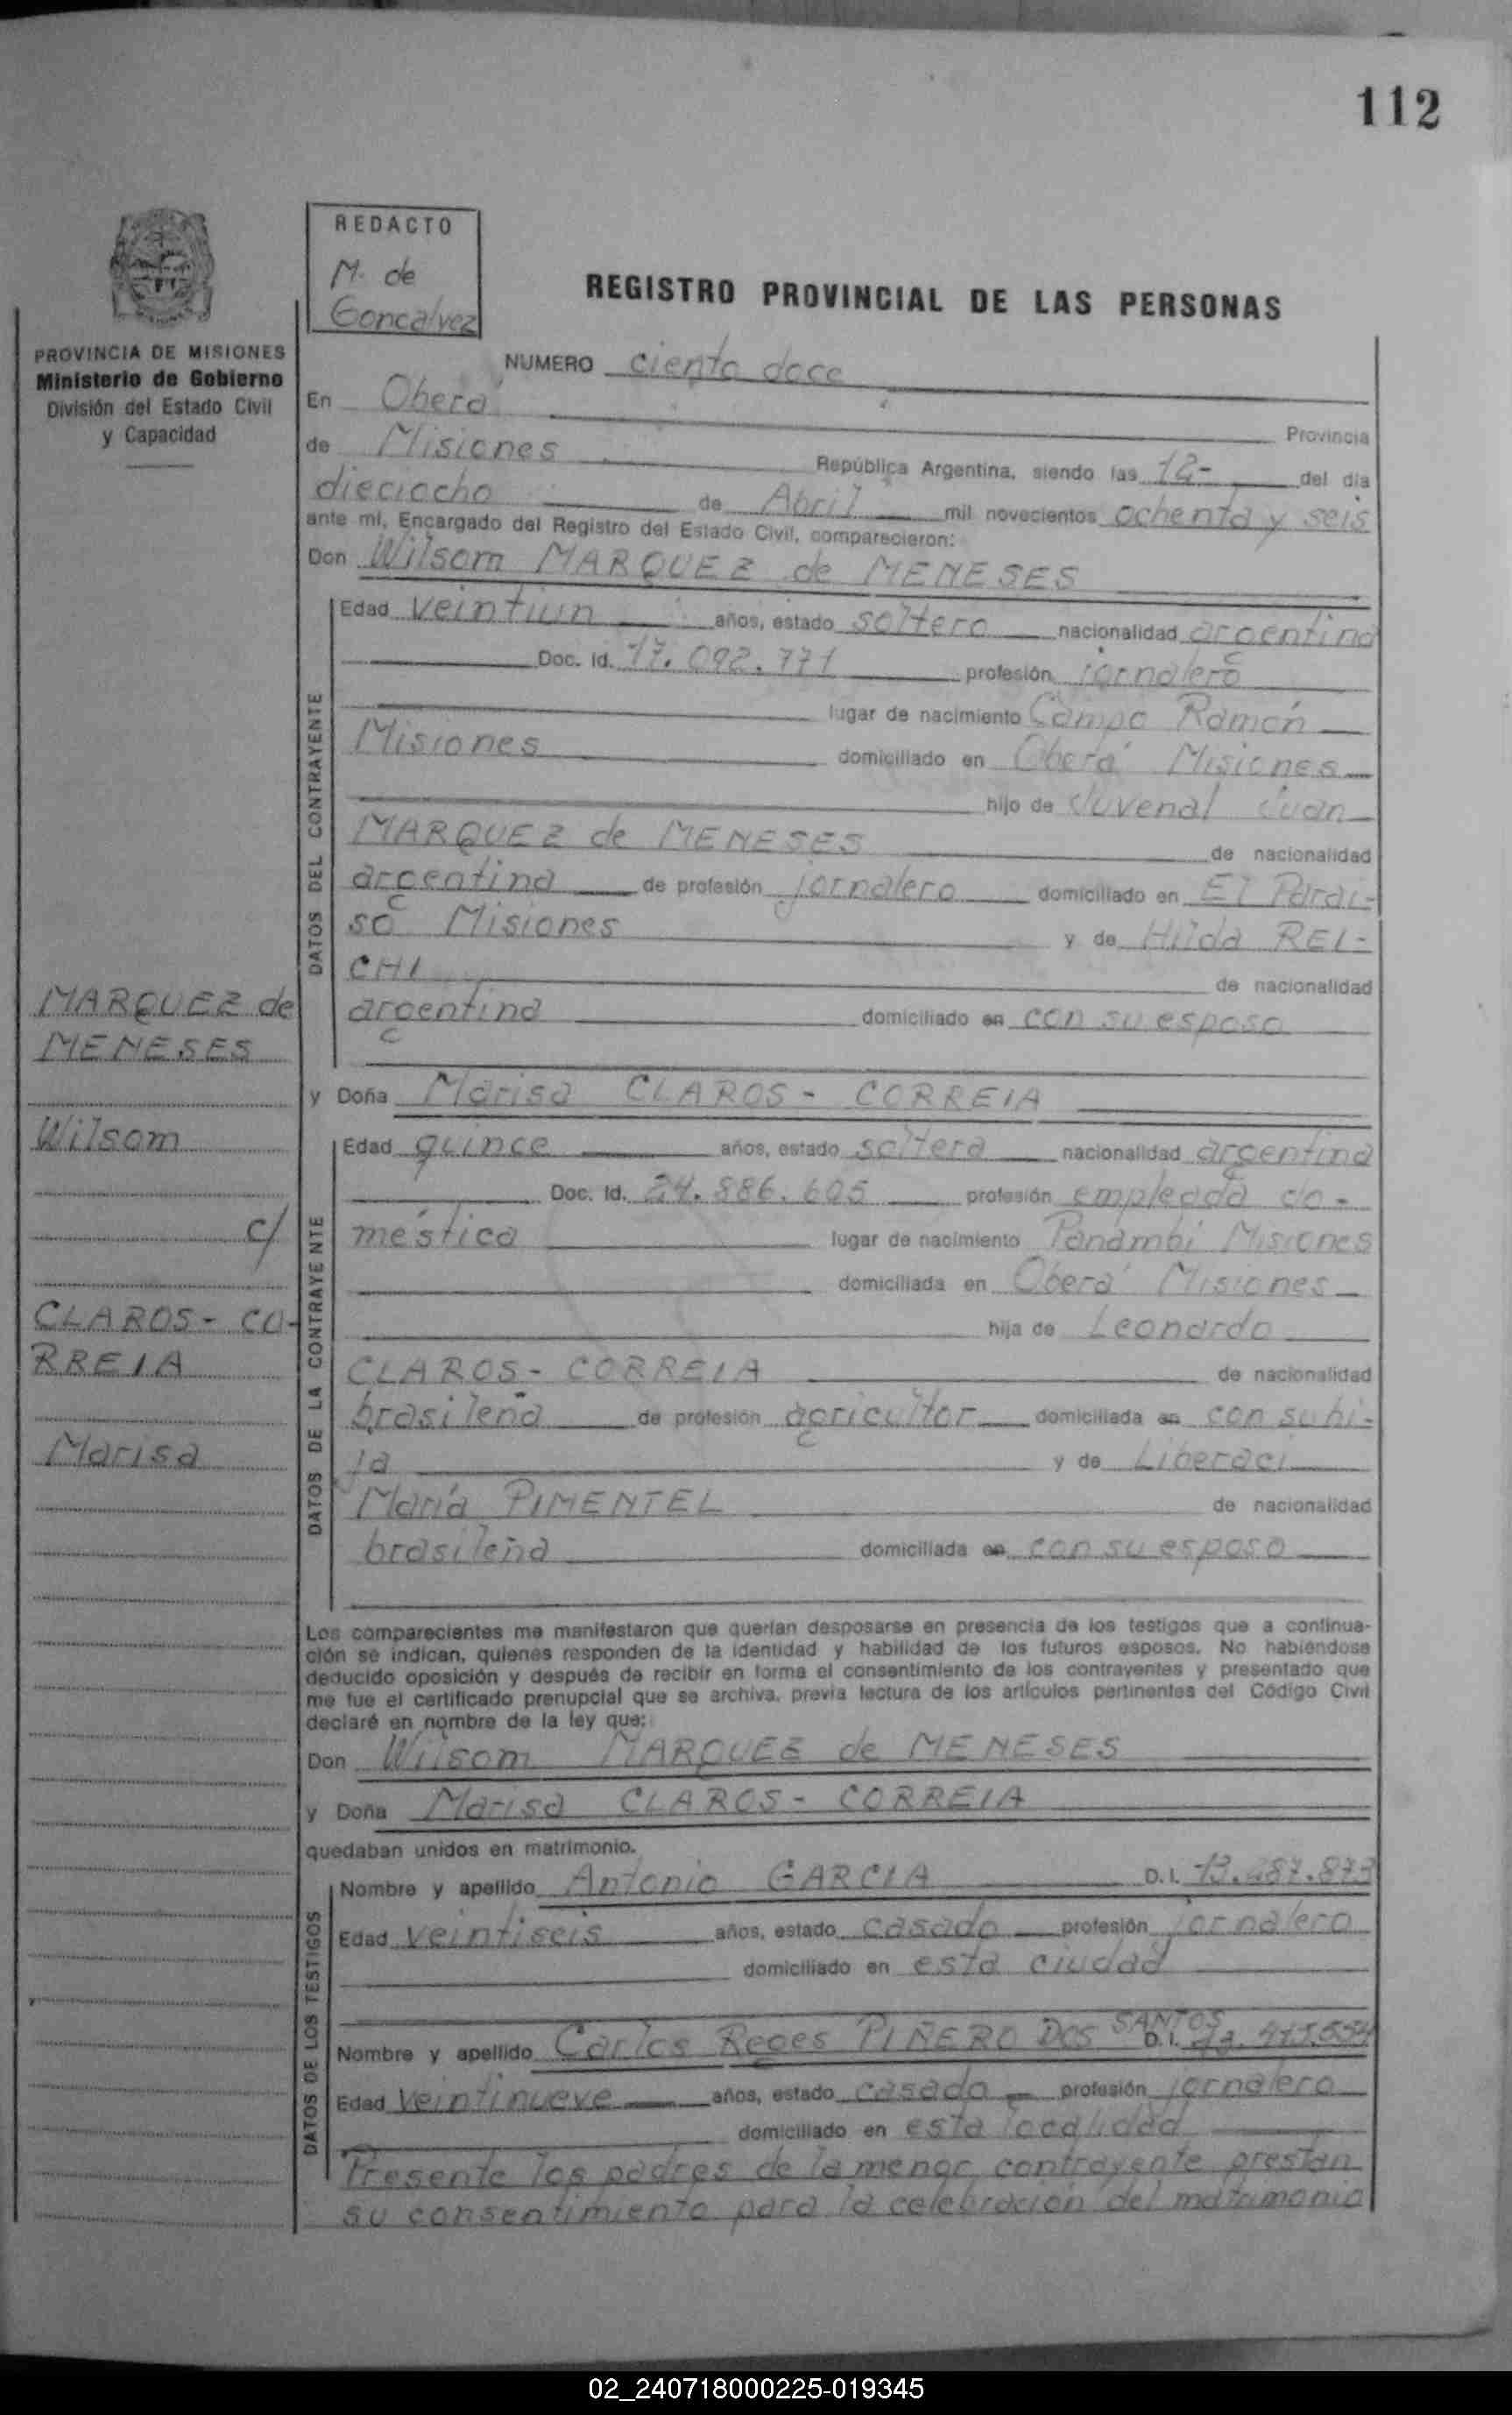 112
REDACTO
M. de
Goncalvez
REGISTRO PROVINCIAL DE LAS PERSONAS
PROVINCIA DE MISIONES
Ministerio de Gobierno
División del Estado Civil
y Capacidad
NUMERO ciento doce
En Oberá Provincia
de Misiones República Argentina, siendo las 12- del día
dieciocho de Abril mil novecientos ochenta y seis
ante mí, Encargado del Registro del Estado Civil, comparecieron:
Don Wilsom MARQUEZ de MENESES
DATOS DEL CONTRAYENTE
Edad veintiun años, estado soltero nacionalidad argentina
Doc. Id. 17.092.771 profesión jornalero
lugar de nacimiento Campo Ramón
Misiones domiciliado en Oberá Misiones
hijo de Juvenal Juan
MARQUEZ de MENESES de nacionalidad
argentina de profesión jornalero domiciliado en El Parai-
so Misiones y de Hilda REI-
CHI de nacionalidad
argentina domiciliado en con su esposo
MARQUEZ de
MENESES
Wilsom
c/
CLAROS - CO-
RREIA
Marisa
y Doña Marisa CLAROS - CORREIA
DATOS DE LA CONTRAYENTE
Edad quince años, estado soltera nacionalidad argentina
Doc. Id. 24.886.605 profesión empleada do-
méstica lugar de nacimiento Panambí Misiones
domiciliada en Oberá Misiones
hija de Leonardo
CLAROS - CORREIA de nacionalidad
brasileña de profesión agricultor domiciliada en con su hi-
ja y de Liberaci
María PIMENTEL de nacionalidad
brasileña domiciliada en con su esposo
Los comparecientes me manifestaron que querían desposarse en presencia de los testigos que a continua-
ción se indican, quienes responden de la identidad y habilidad de los futuros esposos. No habiéndose
deducido oposición y después de recibir en forma el consentimiento de los contrayentes y presentado que
me fue el certificado prenupcial que se archiva, previa lectura de los artículos pertinentes del Código Civil
declaré en nombre de la ley que:
Don Wilsom MARQUEZ de MENESES
y Doña Marisa CLAROS - CORREIA
quedaban unidos en matrimonio.
DATOS DE LOS TESTIGOS
Nombre y apellido Antonio GARCIA D.I.
Edad veintiseis años, estado casado profesión jornalero
domiciliado en esta ciudad
Nombre y apellido Carlos Reges PIÑERO DOS SANTOS D.I.
Edad veintinueve años, estado casado profesión jornalero
domiciliado en esta localidad
Presente los padres de la menor contrayente prestan
su consentimiento para la celebración del matrimonio
02_240718000225-019345